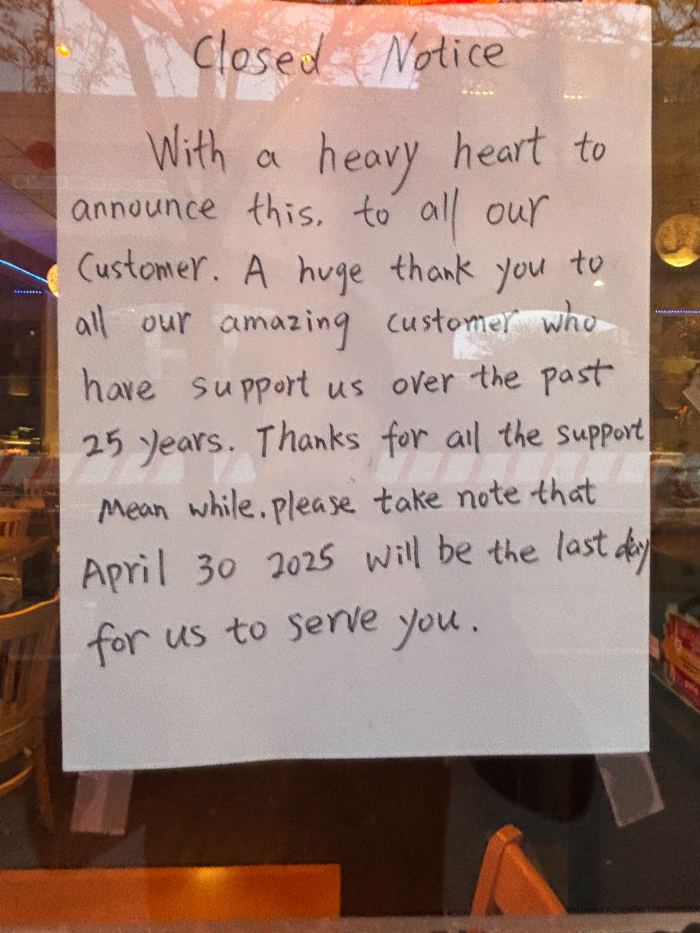 Closed Notice
With a heavy heart to
announce this. to all our
Customer. A huge thank you to
all our amazing customer who
have support us over the past
25 years. Thanks for all the support
Mean while. please take note that
April 30 2025 will be the last day
for us to serve you.